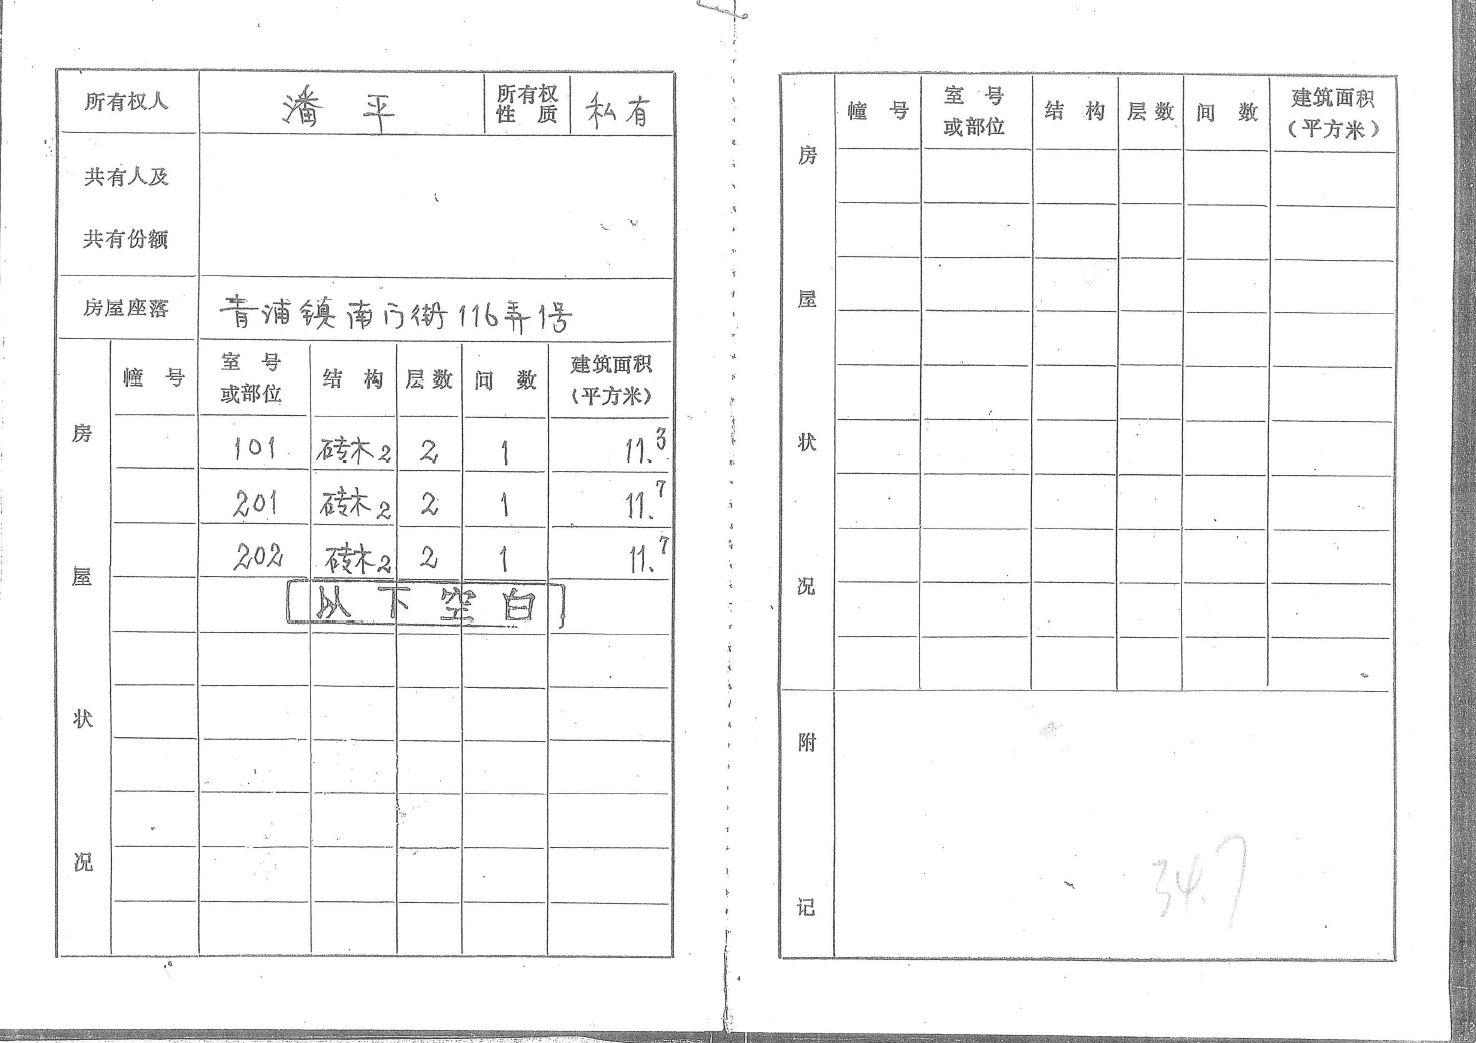 所有权人 潘平 所有权性质 私有
共有人及
共有份额
房屋座落 青浦镇南门街116弄1号
房屋状况
幢号 室号或部位 结构 层数 间数 建筑面积（平方米）
101 砖木2 2 1 11.3
201 砖木2 2 1 11.7
202 砖木2 2 1 11.7
以下空白
房屋状况
幢号 室号或部位 结构 层数 间数 建筑面积（平方米）
附记
34.7